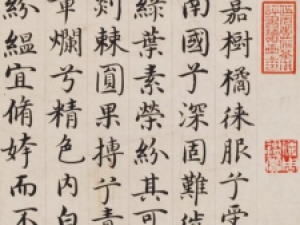 嘉樹橘徠服兮受
南國兮深固難徙
綠葉素榮紛其可
剡棘圓果摶兮青
章爛兮精色內白
紛緼宜脩姱而不